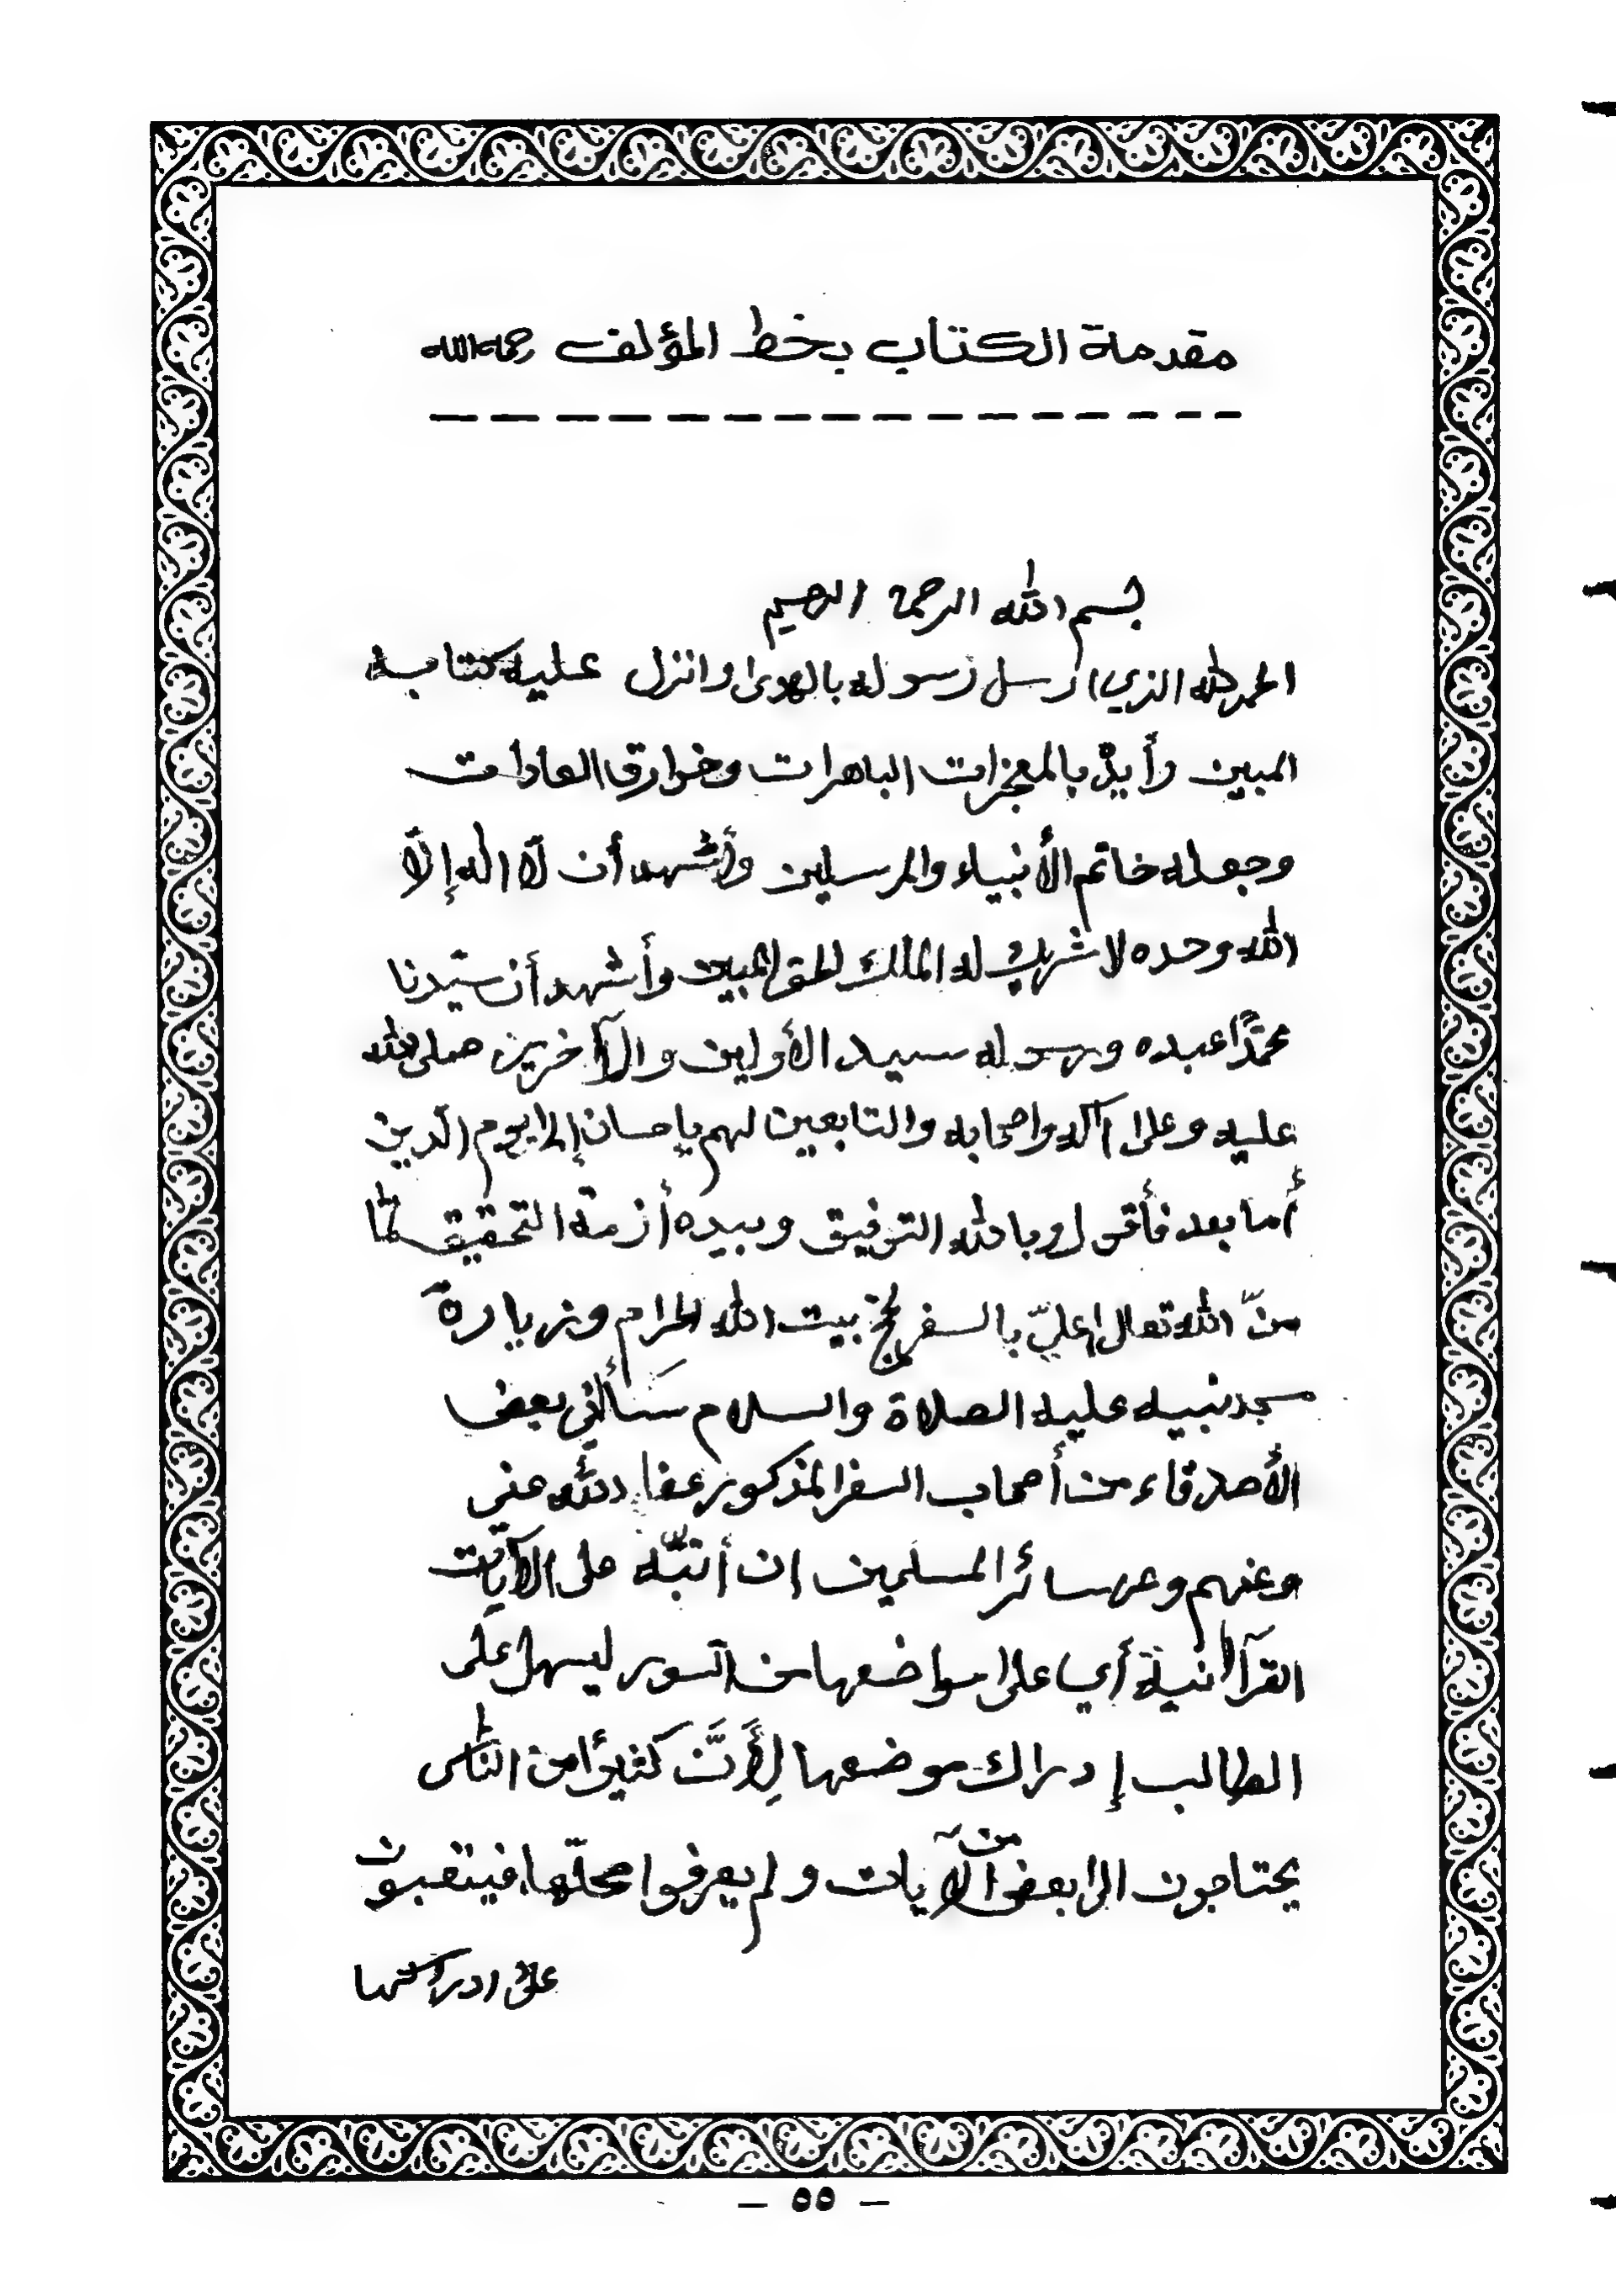 مقدمة الكتاب بخط المؤلف رحمه الله
بسم الله الرحمن الرحيم
الحمد لله الذي ارسل رسوله بالهدى وانزل عليه كتابه
المبين وأيده بالمعجزات الباهرات وخوارق العادات
وجعله خاتم الأنبياء والمرسلين وأشهد أن لآ اله إلآ
الله وحده لا شريك له الملك الحق المبين وأشهد أن سيّدنا
محمّدًا عبده ورسوله سيد الأولين والآخرين صلى الله
عليه وعلى آله واصحابه والتابعين لهم بإحسان إلى يوم الدين
أما بعد فأقول وبالله التوفيق وبيده أزمة التحقيق لمّا
منّ الله تعالى عليّ بالسفر لحج بيت الله الحرام وزيارة
مسجد نبيه عليه الصلاة والسلام سَألني بعض
الأصدقاء من أصحاب السفر المذكور عفا الله عني
وعنهم وعن سائر المسلمين ان أنبّه على الآيات
القرآنية أي على مواضعها من السور ليسهل على
الطالب إدراك موضعها لِأَنَّ كثيرًا من النّاس
يحتاجون الى بعض من الآيات ولم يعرفوا محلّها فيتعبون
على ادراكها
— ٥٥ —